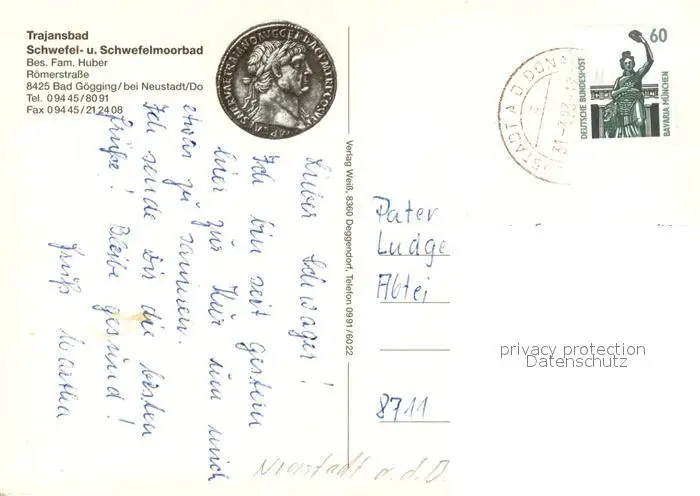 Trajansbad
Schwefel- u. Schwefelmoorbad
Bes. Fam. Huber
Römerstraße
8425 Bad Gögging / bei Neustadt/Do
Tel. 0 94 45 / 80 91
Fax 0 94 45 / 21 24 08
Lieber Schwager!
Ich bin seit gestern
hier zur Kur um mich
etwas zu sanieren.
Ich sende Dir die besten
Grüße! Bleibe gesund!
Gruß Martha
Verlag Weiß, 8360 Deggendorf, Telefon 09 91 / 60 22
60
DEUTSCHE BUNDESPOST
BAVARIA MÜNCHEN
STADT A D DON
Pater
Ludge
Abtei
8711
privacy protection
Datenschutz
Neustadt a. d. D.